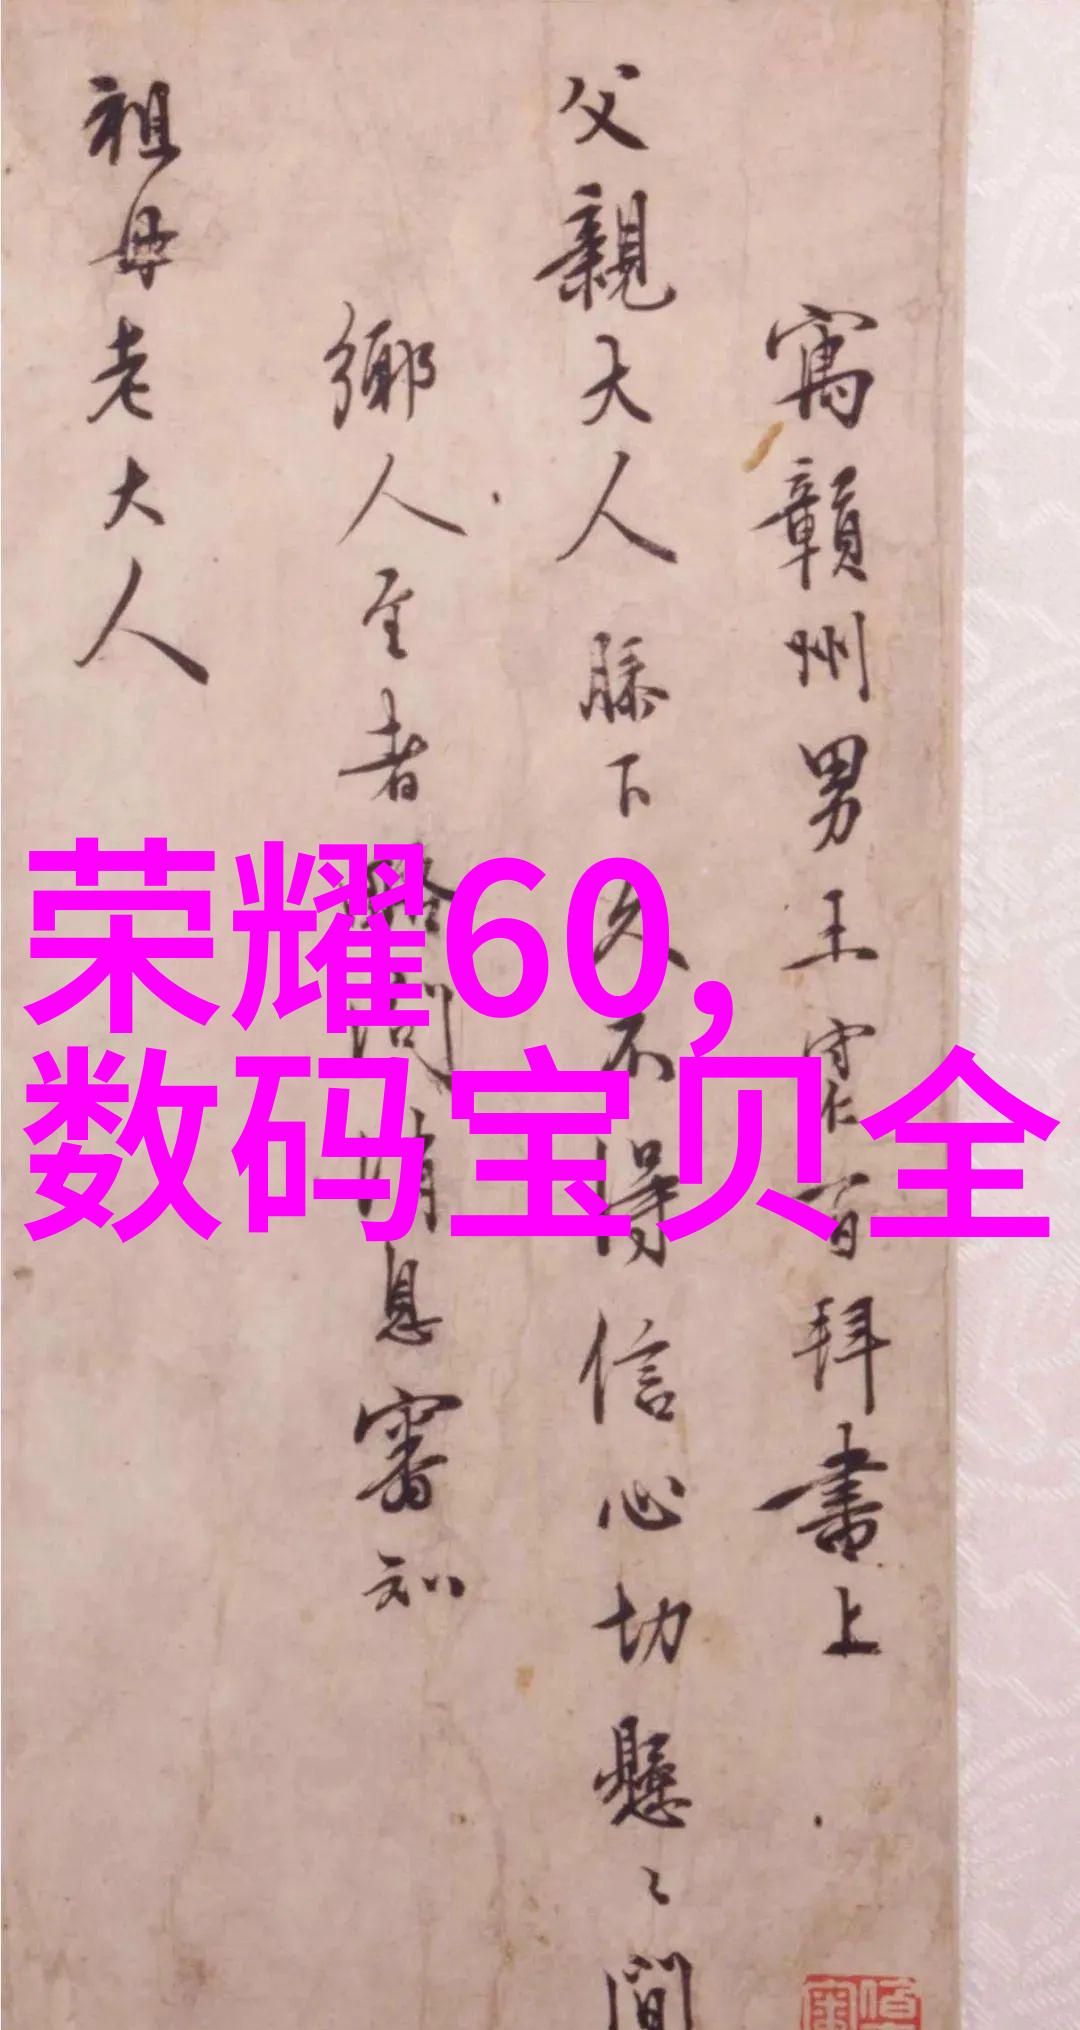 寓贛州男王守仁百拜書上
父親大人膝下久不得信心切懸〻間
鄉人至者 問消息審知
祖母老大人
荣耀60,
数码宝贝全